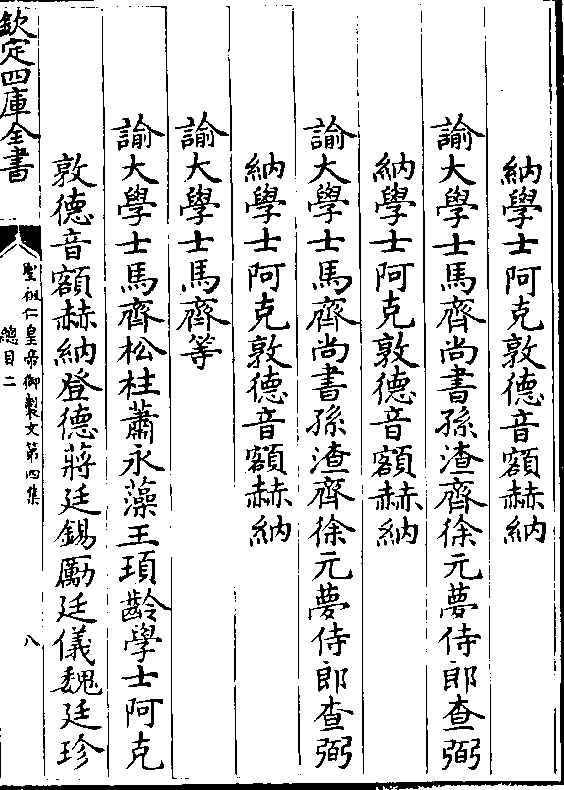 納學士阿克敦德音額赫納
諭大學士馬齊尚書孫渣齊徐元夢侍郎查弼
納學士阿克敦德音額赫納
諭大學士馬齊尚書孫渣齊徐元夢侍郎查弼
納學士阿克敦德音額赫納
諭大學士馬齊等
諭大學士馬齊松柱蕭永藻王頊齡學士阿克
敦德音額赫納登德蔣廷錫勵廷儀魏廷珍
欽定四庫全書
聖祖仁皇帝御製文第四集
總目二
八